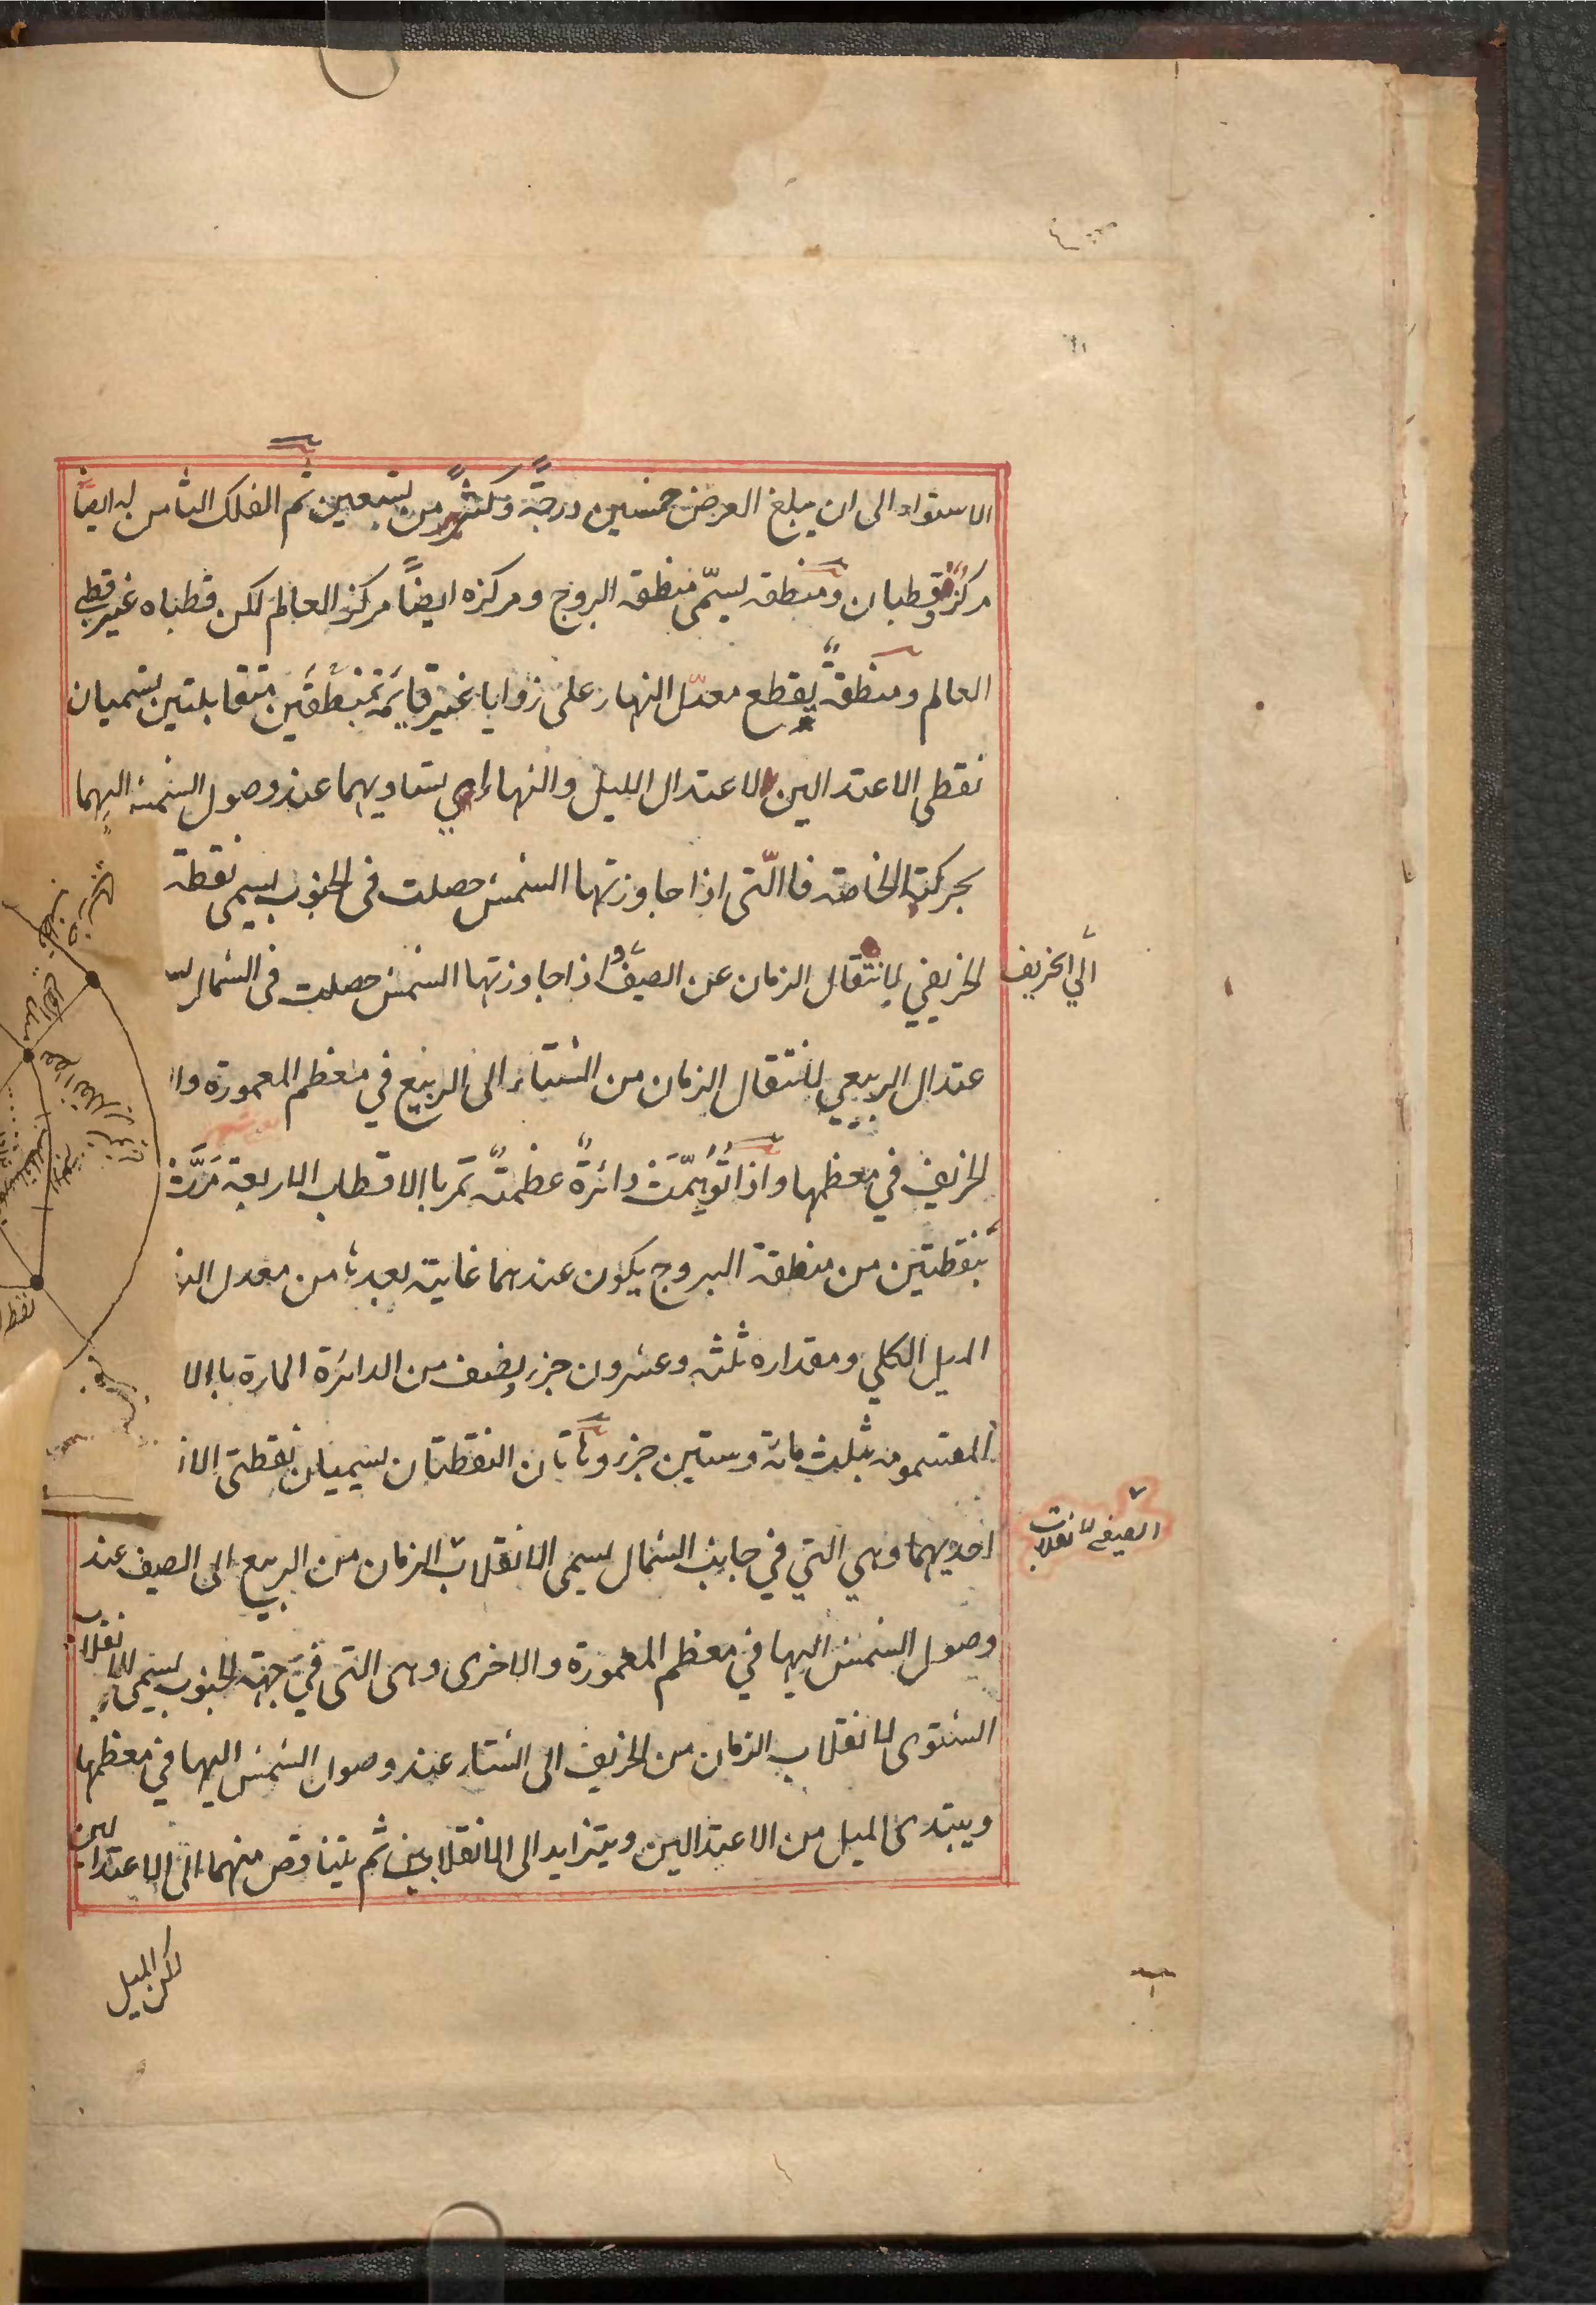 الاستواء الى ان يبلغ العرض خمسين درجة وكثير من تسعين ثم الفلك الثامن له ايضًا
مركز وقطبان ومنطقة يسمّى منطقة البروج ومركزه ايضًا مركز العالم لكن قطباه غير قطبي
العالم ومنطقةٌ يقطع معدّل النهار على زوايا غير قايمة بنقطتين متقابلتين يسميان
نقطى الاعتدالين الاعتدال الليل والنهار اي تساويهما عند وصول الشمس اليهما
بحركتها الخاصة فاالّتى اذا جاوزتها الشمس حصلت فى الجنوب يسمى نقطة
الخريفي لانتقال الزمان عن الصيف واذا جاوزتها الشمس حصلت فى الشمال يس
الي الخريف
عتدال الربيعي لانتقال الزمان من الشتاء الى الربيع في معظم المعمورة وا
لخريف في معظمها واذا تُوُهِّمَتْ دائرةٌ عظمةٌ تمر باالاقطاب الاربعة مَرَّتْ
بنقطتين من منطقة البروج يكون عندهما غاية بعدها من معدل الن
الميل الكلي ومقداره ثلثه وعشرون جزء ونصف من الدائرة المارة باالا
المقسومه بثلث مائة وستين جزء وهاتان النقطتان يسميان نقطتى الا
احديهما وهي التي في جانب الشمال يسمى الانقلاب الزمان من الربيع الى الصيف عند
الصيفى لانقلاب
وصول الشمس اليها في معظم المعمورة والاخرى وهى التى في جهة الجنوب يسمى الانقلاب
الشتوى لانقلاب الزمان من الخريف الى الشتاء عند وصول الشمس اليها في معظمها
ويبتدى الميل من الاعتدالين ويتزايد الى الانقلابين ثم يتناقص منهما الى الاعتدالين
لكن الميل